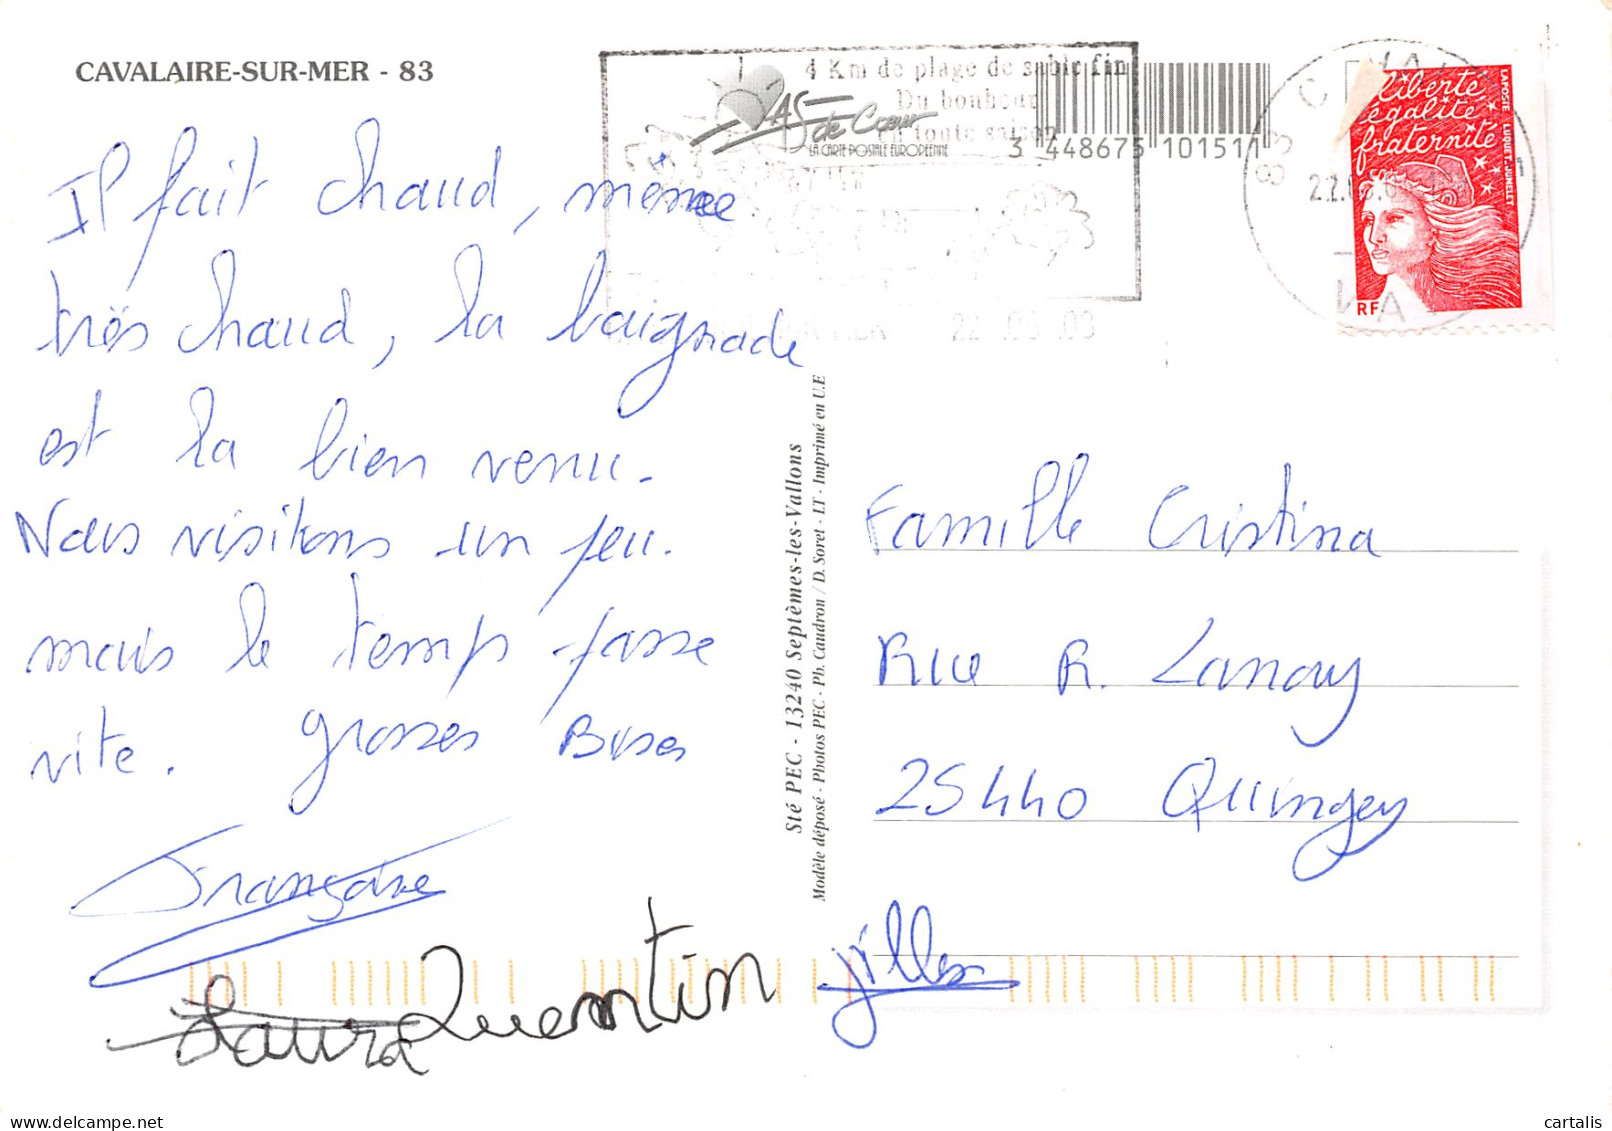 CAVALAIRE-SUR-MER - 83
4 Km de plage de sable fin
Du bonheur
en toute saison
AS de Cœur
LA CARTE POSTALE EUROPEENNE
3 448675 101511
liberté
égalité
fraternité
LA POSTE
LUQUET-JUMELET
RF
83
22.08.03
Il fait chaud, même
très chaud, la baignade
est la bien venu.
Nous visitons un peu.
mais le temps passe
vite. grosses Bises
Françoise
Laura Quentin
gilles
Famille Cristina
Rue R. Lanoy
25440 Quingey
Sté PEC - 13240 Septèmes-les-Vallons
Modèle déposé - Photos PEC - Ph. Caudron / D. Soret - LT - Imprimé en U.E
cartalis
delcampe.net